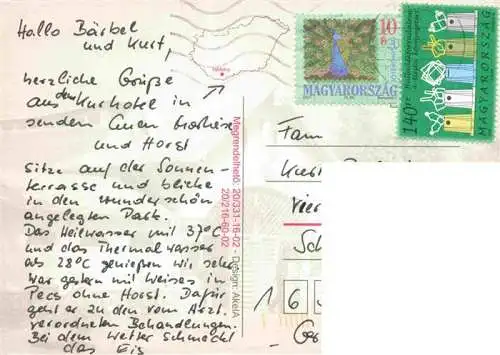 Hallo Bärbel
und Kurt,
herzliche Grüße
aus dem Kurhotel in
senden Euch
und Horst
sitze auf der Sonnen-
terrasse und blicke
in den wunderschön
angelegten Park.
Das Heilwasser mit 37°C
und das Thermalwasser
ab 28°C genießen wir sehr
War gestern mit Weises in
Pecs ohne Horst. Dafür
geht er zu den vom Arzt
verordneten Behandlungen.
Bei dem Wetter schmeckt
das Eis
Megrendelhető: 20/331-16-02 - Design: AkelA
20/216-60-02
10
MAGYARORSZÁG
140 FT
MAGYARORSZÁG
Fam
Kurt
Vier
Sch
1 6